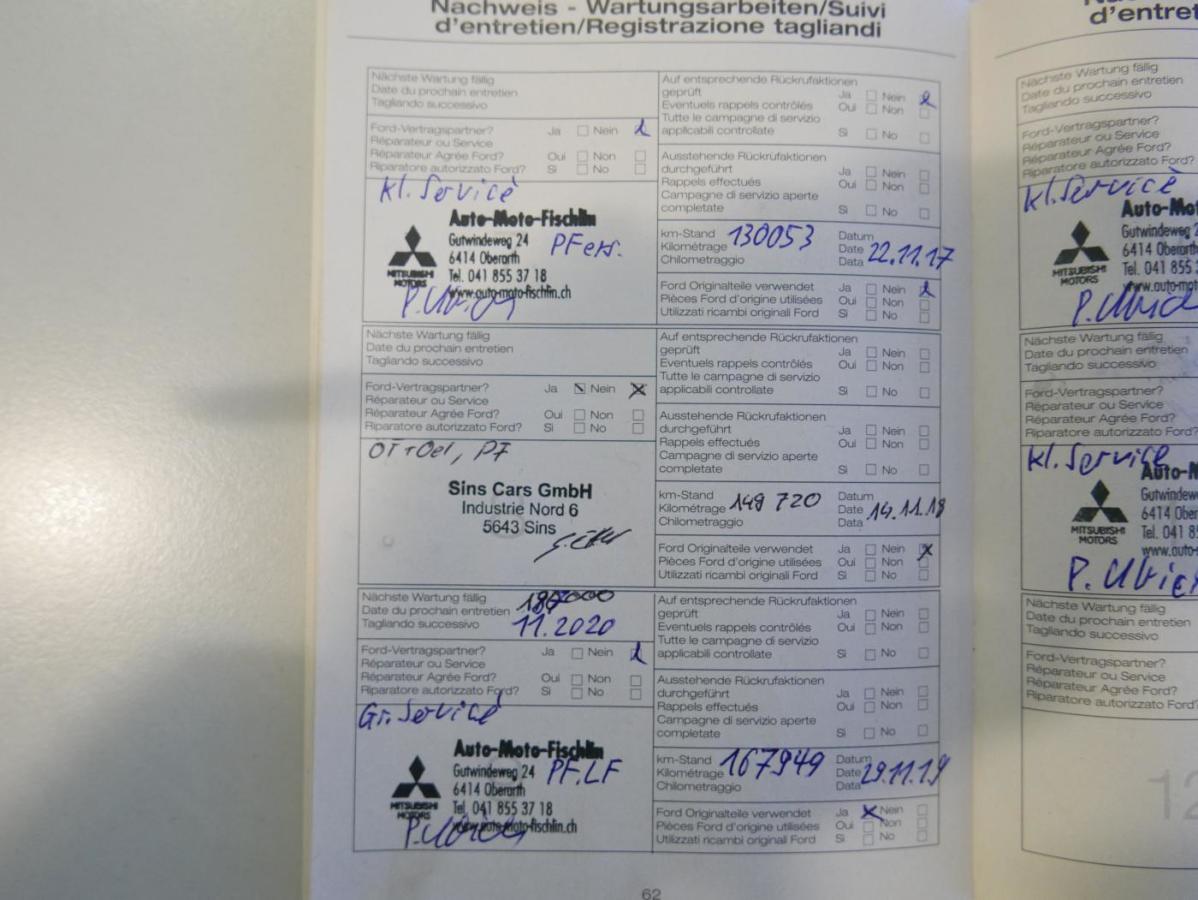 Nachweis - Wartungsarbeiten/Suivi
d'entretien/Registrazione tagliandi
Nächste Wartung fällig
Date du prochain entretien
Tagliando successivo
Ford-Vertragspartner? Ja Nein
Réparateur ou Service
Réparateur Agrée Ford? Oui Non
Riparatore autorizzato Ford? Si No
Kl. Service
Auto-Moto-Fischlin
Gutwindeweg 24
PFers.
6414 Oberarth
MITSUBISHI
MOTORS
Tel. 041 855 37 18
www.auto-moto-fischlin.ch
Auf entsprechende Rückrufaktionen
geprüft Ja Nein
Eventuels rappels contrôlés Oui Non
Tutte le campagne di servizio
applicabili controllate Si No
Ausstehende Rückrufaktionen
durchgeführt Ja Nein
Rappels effectués Oui Non
Campagne di servizio aperte
completate Si No
km-Stand
Kilométrage 130053
Chilometraggio
Datum
Date 22.11.17
Data
Ford Originalteile verwendet Ja Nein
Pièces Ford d'origine utilisées Oui Non
Utilizzati ricambi originali Ford Si No
Nächste Wartung fällig
Date du prochain entretien
Tagliando successivo
Ford-Vertragspartner? Ja Nein
Réparateur ou Service
Réparateur Agrée Ford? Oui Non
Riparatore autorizzato Ford? Si No
PF
Sins Cars GmbH
Industrie Nord 6
5643 Sins
Auf entsprechende Rückrufaktionen
geprüft Ja Nein
Eventuels rappels contrôlés Oui Non
Tutte le campagne di servizio
applicabili controllate Si No
Ausstehende Rückrufaktionen
durchgeführt Ja Nein
Rappels effectués Oui Non
Campagne di servizio aperte
completate Si No
km-Stand
Kilométrage 149 720
Chilometraggio
Datum
Date 14.11.18
Data
Ford Originalteile verwendet Ja Nein
Pièces Ford d'origine utilisées Oui Non
Utilizzati ricambi originali Ford Si No
Nächste Wartung fällig
Date du prochain entretien
Tagliando successivo 11.2020
Ford-Vertragspartner? Ja Nein
Réparateur ou Service
Réparateur Agrée Ford? Oui Non
Riparatore autorizzato Ford? Si No
Gr. Service
Auto-Moto-Fischlin
Gutwindeweg 24
PF.LF
6414 Oberarth
MITSUBISHI
MOTORS
Tel. 041 855 37 18
www.auto-moto-fischlin.ch
Auf entsprechende Rückrufaktionen
geprüft Ja Nein
Eventuels rappels contrôlés Oui Non
Tutte le campagne di servizio
applicabili controllate Si No
Ausstehende Rückrufaktionen
durchgeführt Ja Nein
Rappels effectués Oui Non
Campagne di servizio aperte
completate Si No
km-Stand
Kilométrage 167949
Chilometraggio
Datum
Date 29.11.19
Data
Ford Originalteile verwendet Ja Nein
Pièces Ford d'origine utilisées Oui Non
Utilizzati ricambi originali Ford Si No
62
d'entret
Nächste Wartung fällig
Date du prochain entretien
Tagliando successivo
Ford-Vertragspartner?
Réparateur ou Service
Réparateur Agrée Ford?
Riparatore autorizzato Ford?
Kl. Service
Auto-Mo
Gutwindeweg 2
6414 Oberart
MITSUBISHI
MOTORS
Tel. 041 855
www.auto-mot
Nächste Wartung fällig
Date du prochain entretien
Tagliando successivo
Ford-Vertragspartner?
Réparateur ou Service
Réparateur Agrée Ford?
Riparatore autorizzato Ford?
Kl. Service
Auto-M
Gutwindew
6414 Ober
MITSUBISHI
MOTORS
Tel. 041 8
www.auto-
Nächste Wartung fällig
Date du prochain entretien
Tagliando successivo
Ford-Vertragspartner?
Réparateur ou Service
Réparateur Agrée Ford?
Riparatore autorizzato Ford?
12